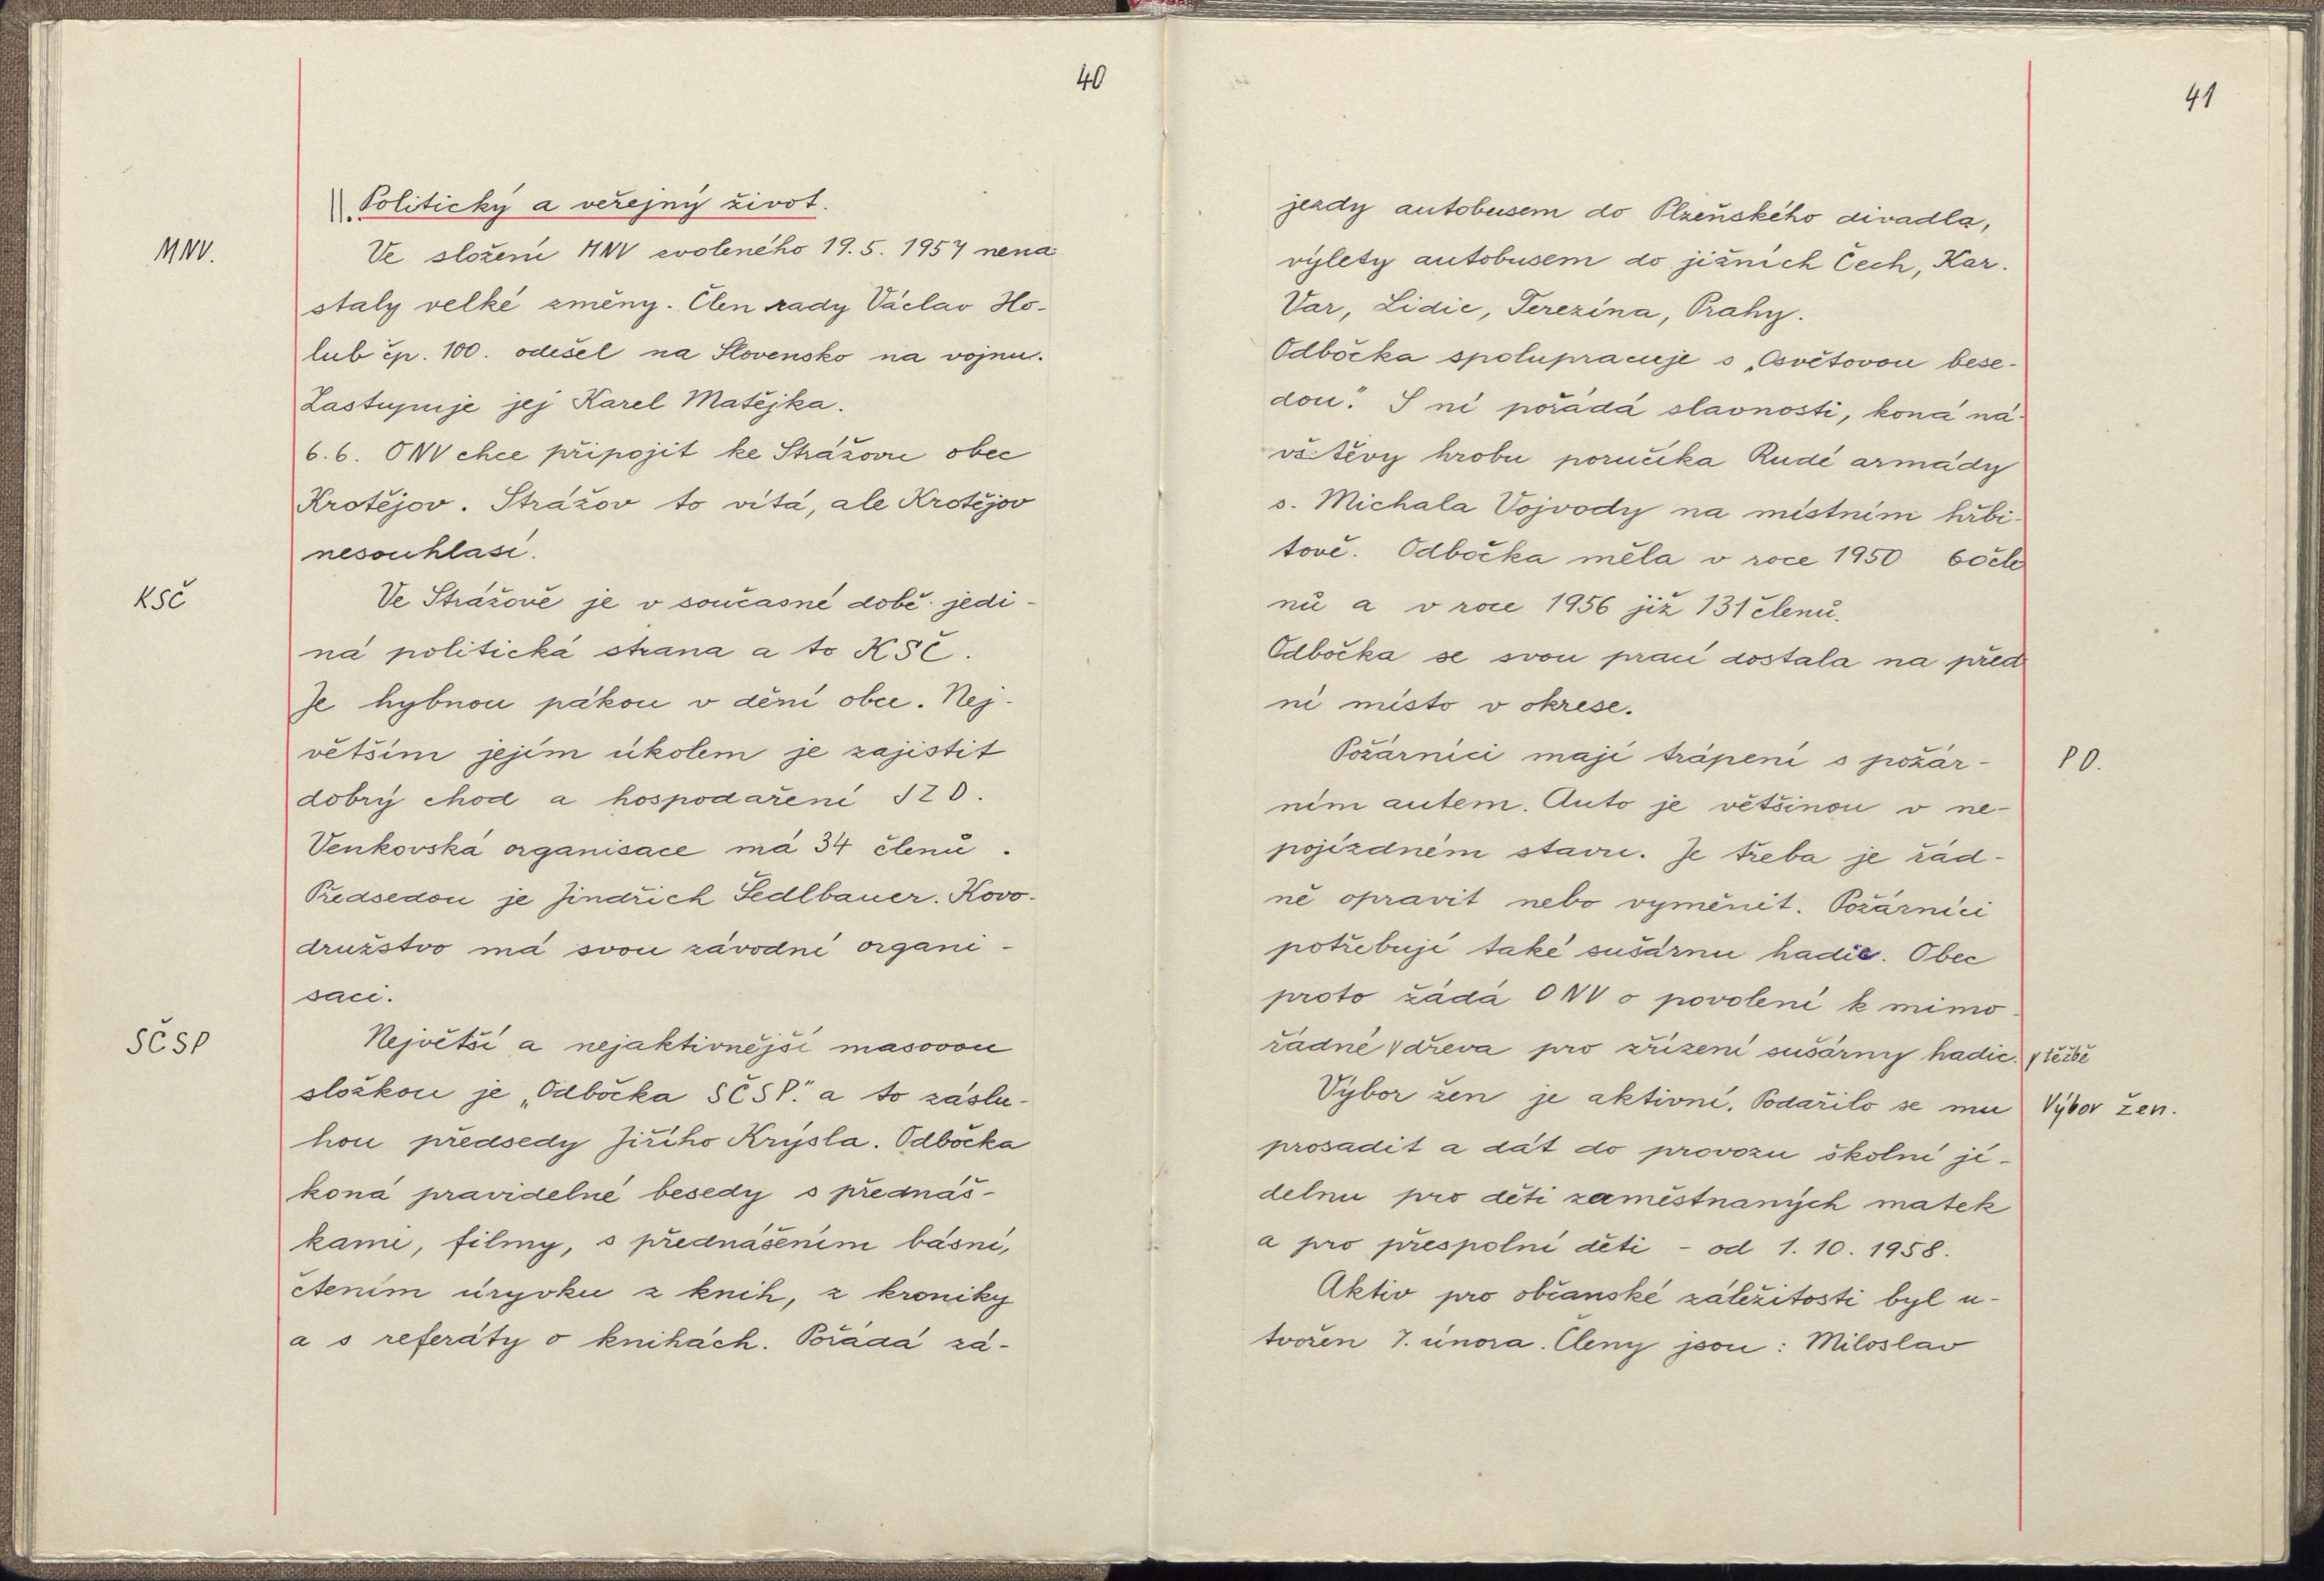 40
II. Politický a veřejný život.
MNV.
Ve složení MNV zvoleného 19.5. 1957 nena-
staly velké změny. Člen rady Václav Ho-
lub čp. 100. odešel na Slovensko na vojnu.
Zastupuje jej Karel Matějka.
6.6. ONV chce připojit ke Strážovu obec
Krotějov. Strážov to vítá, ale Krotějov
nesouhlasí.
KSČ
Ve Strážově je v současné době jedi-
ná politická strana a to KSČ.
Je hybnou pákou v dění obce. Nej-
větším jejím úkolem je zajistit
dobrý chod a hospodaření JZD.
Venkovská organisace má 34 členů.
Předsedou je Jindřich Šedlbauer. Kovo-
družstvo má svou závodní organi-
saci.
SČSP
Největší a nejaktivnější masovou
složkou je „Odbočka SČSP." a to záslu-
hou předsedy Jiřího Krýsla. Odbočka
koná pravidelné besedy s přednáš-
kami, filmy, s přednášením básní,
čtením úryvku z knih, z kroniky
a s referáty o knihách. Pořádá zá-
41
jezdy autobusem do Plzeňského divadla,
výlety autobusem do jižních Čech, Kar.
Var, Lidic, Terezína, Prahy.
Odbočka spolupracuje s „Osvětovou bese-
dou." S ní pořádá slavnosti, koná ná-
vštěvy hrobu poručíka Rudé armády
s. Michala Vojvody na místním hřbi-
tově. Odbočka měla v roce 1950 60 čle
nů a v roce 1956 již 131 členů.
Odbočka se svou prací dostala na před
ní místo v okrese.
Požárníci mají trápení s požár-
PO.
ním autem. Auto je většinou v ne-
pojízdném stavu. Je třeba je řád-
ně opravit nebo vyměnit. Požárníci
potřebují také sušárnu hadic. Obec
proto žádá ONV o povolení k mimo-
řádné √ dřeva pro zřízení sušárny hadic. √ těžbě
Výbor žen je aktivní. Podařilo se mu
Výbor žen.
prosadit a dát do provozu školní jí-
delnu pro děti zaměstnaných matek
a pro přespolní děti - od 1. 10. 1958.
Aktiv pro občanské záležitosti byl u-
tvořen 7. února. Členy jsou: Miloslav